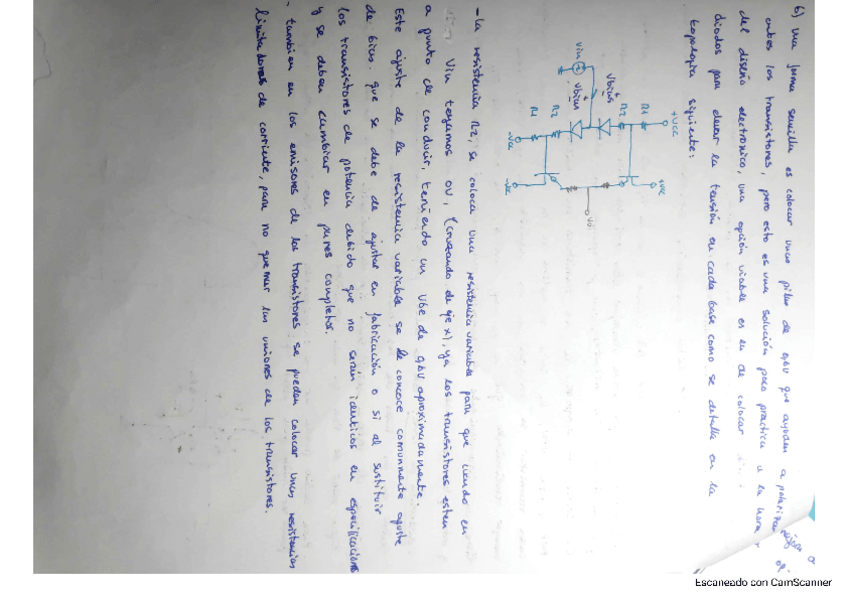 6) una forma sencilla es colocar unas pilas de 0,6V que ayudan a polarizar mejor a
ambos los transistores, pero esto es una solución poco practica a la hora
del diseño electronico, una opción viable es en de colocar
diodos para elevar la tensión en cada base como se detalla en la
topologia siguiente:
+Vcc
+Vcc
R1
R2
Vbias
Vin
Vbias
R2
R1
-Vcc
-Vcc
Vo
- La resistencia R2, se coloca una resistencia variable para que cuando en
Vin tengamos 0V, (cruzando de eje x), ya los transistores esten
a punto de conducir, teniendo un Vbe de 0,6V aproximadamente.
Este ajuste de la resistencia variable se le conoce comunmente ajuste
de bias. que se debe de ajustar en fabricación o si al sustituir
los transistores de potencia debido que no serán identicos en especificaciones
y se deben cambiar en pares completos.
- tambien en los emisores de los transistores se pueden colocar unas resistencias
limitadoras de corriente, para no quemar las uniones de los transistores.
Escaneado con CamScanner